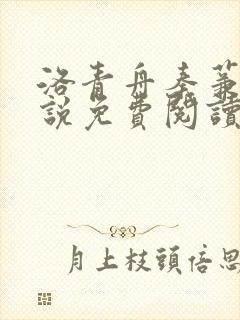 洛青舟秦蒹
說免費閱讀
月上枝頭倍思